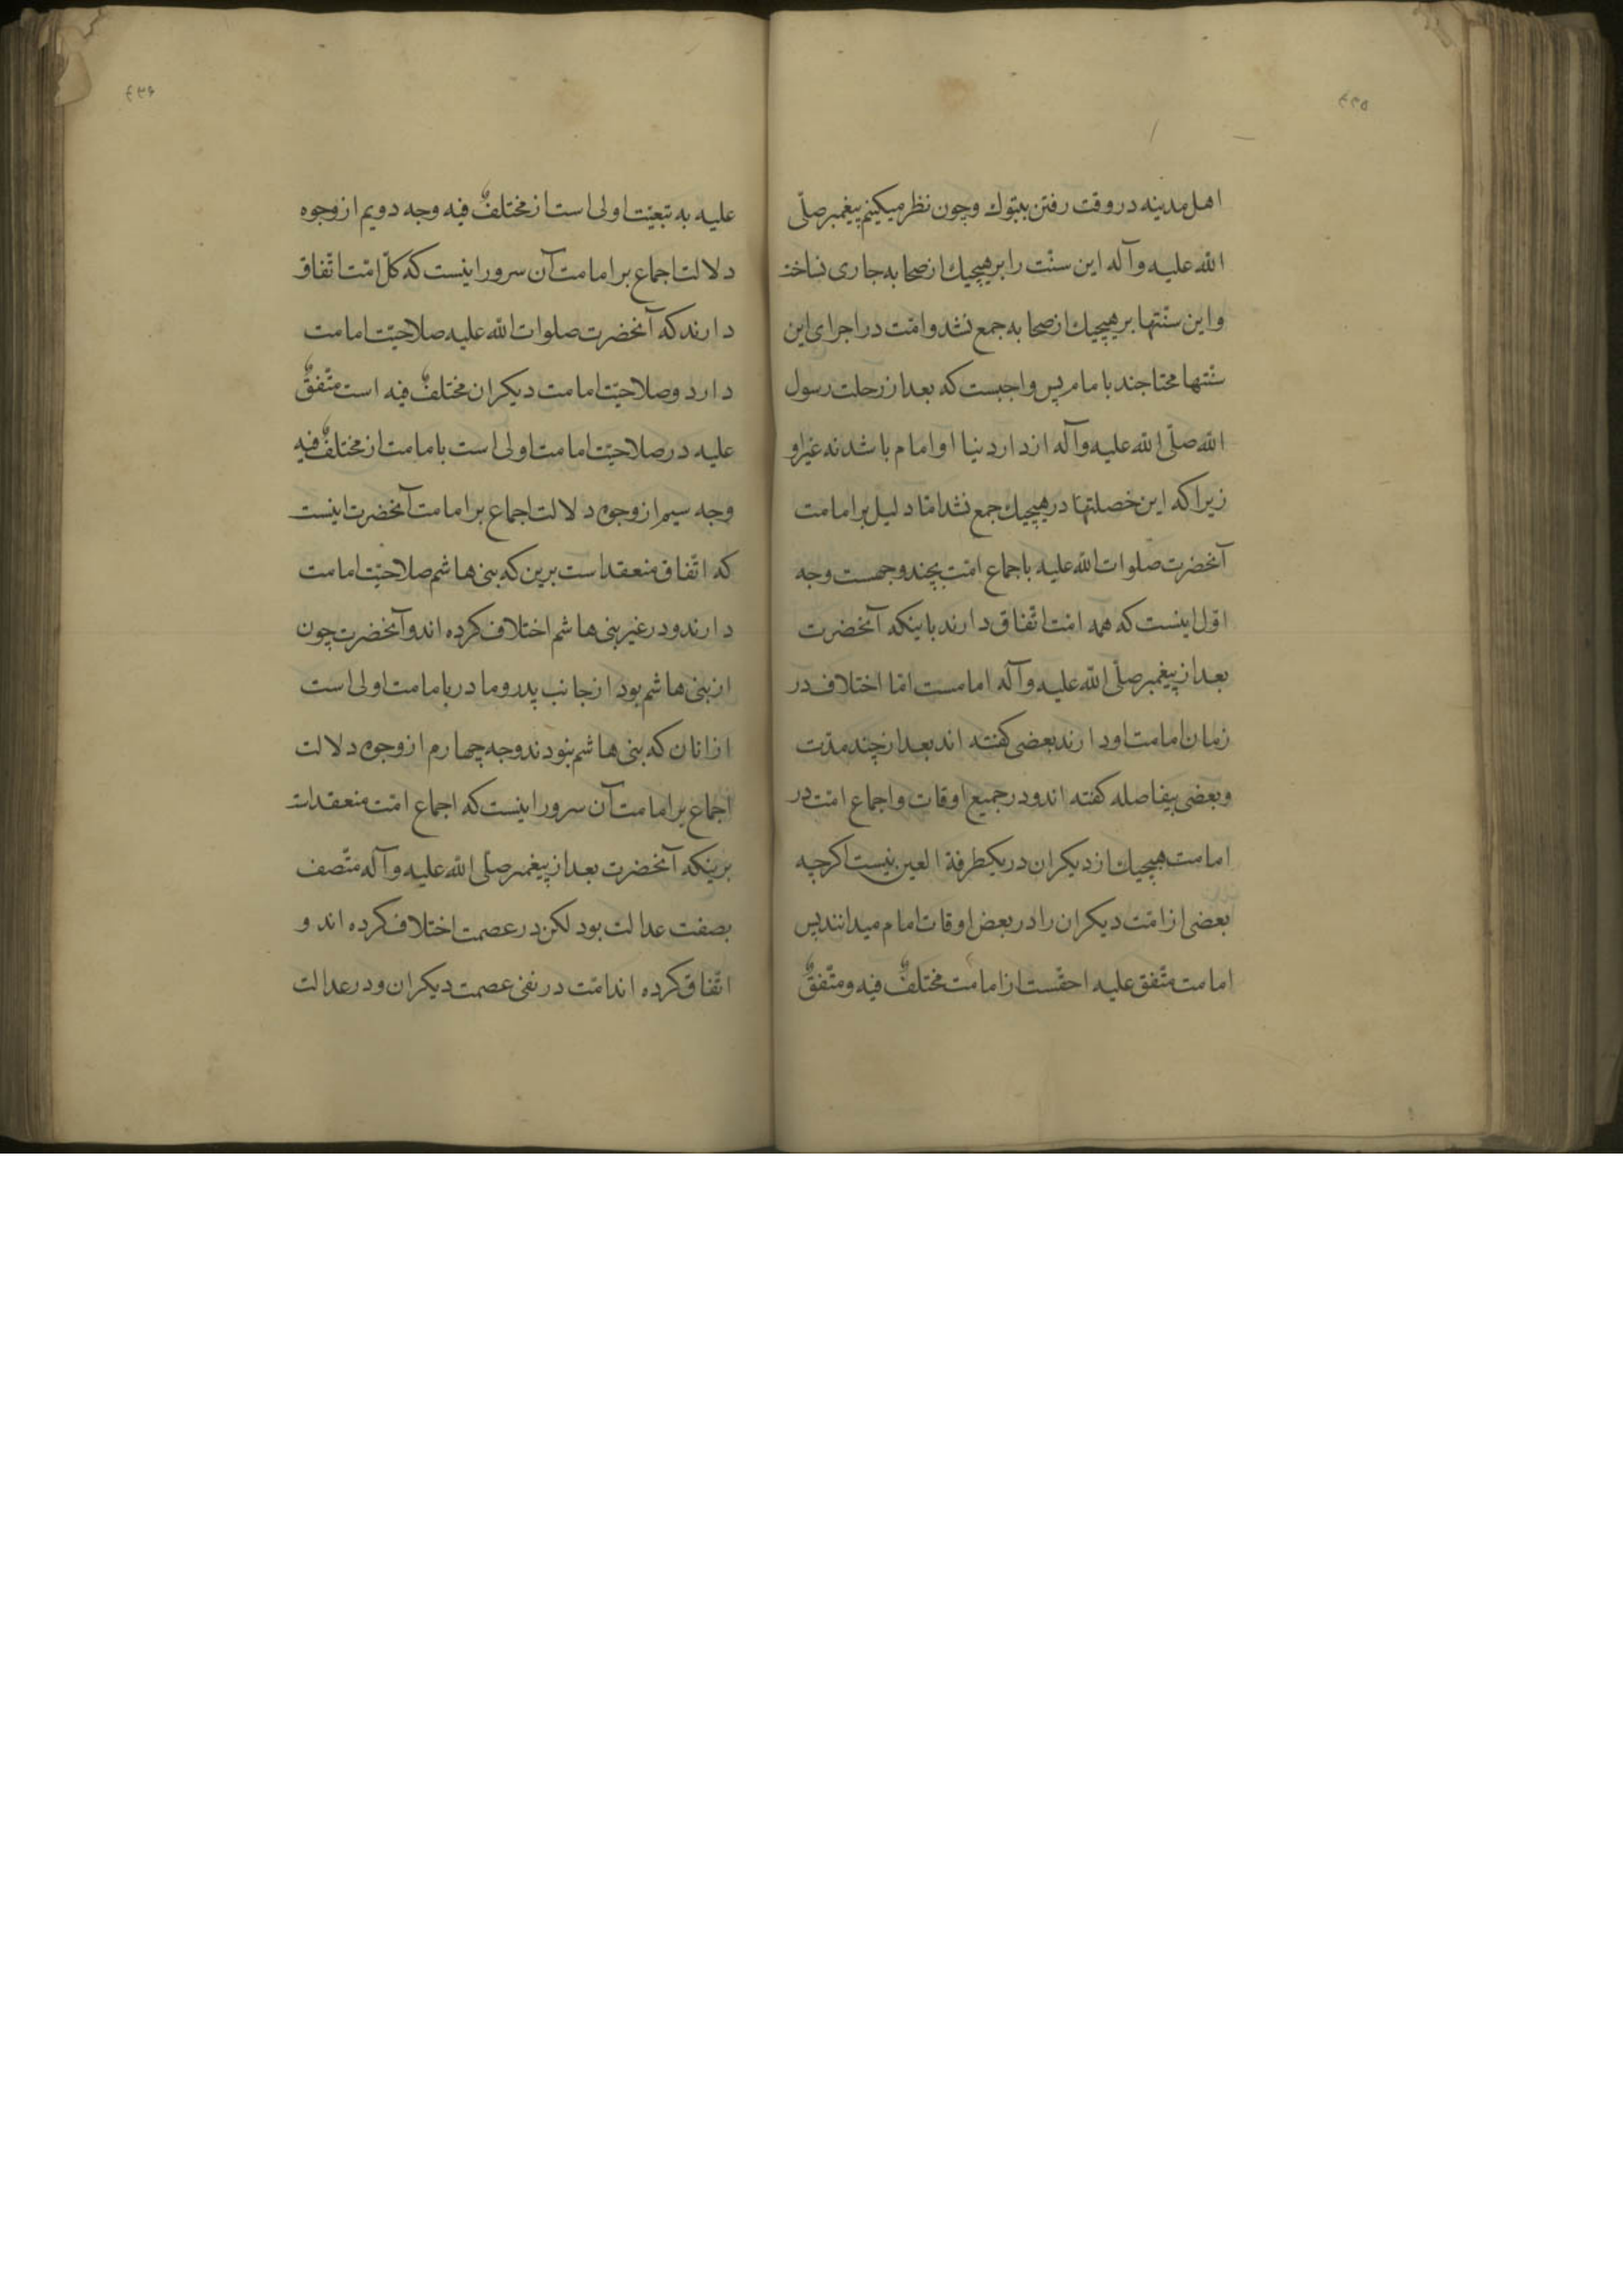 ۴۳۵
اهل مدینه در وقت رفتن بتبوك وچون نظر میکینم پیغمبر صلّی
الله علیه وآله این سنّت را بر هیچیك از صحابه جاری نساخت
واین سنّتها بر هیچیك از صحابه جمع نشد وامّت در اجرای این
سنّتها محتاجند با مام پس واجبست که بعد از رحلت رسول
الله صلّی الله علیه وآله از دار دنیا او امام باشد نه غیر او
زیرا که این خصلتها در هیچیك جمع نشد امّا دلیل بر امامت
آنحضرت صلوات الله علیه باجماع امّت بچند وجهست وجه
اوّل اینست که همه امّت اتّفاق دارند باینکه آنحضرت
بعد از پیغمبر صلّی الله علیه وآله امامست امّا اختلاف در
زمان امامت او دارند بعضی کفته اند بعد از چند مدّت
وبعضی بیفاصله کفته اند ودر جمیع اوقات واجماع امّت در
امامت هیچیك از دیکران در یکطرفة العین نیست اکرچه
بعضی از امّت دیکران را در بعض اوقات امام میدانند پس
امامت متّفق علیه احقّست از امامت مختلفٌ فیه ومتّفقٌ
۴۳۶
علیه به تبعیّت اولی است از مختلفٌ فیه وجه دویم از وجوه
دلالت اجماع بر امامت آن سرور اینست که کلّ امّت اتّفاق
دارند که آنحضرت صلوات الله علیه صلاحیّت امامت
دارد وصلاحیّت امامت دیکران مختلفٌ فیه است متّفقٌ
علیه در صلاحیّت امامت اولی است با مامت از مختلفٌ فیه
وجه سیم از وجوه دلالت اجماع بر امامت آنحضرت اینست
که اتّفاق منعقد است برین که بنی هاشم صلاحیّت امامت
دارند ودر غیر بنی هاشم اختلاف کرده اند وآنحضرت چون
از بنی هاشم بود از جانب پدر ومادر با مامت اولی است
ازانان که بنی هاشم نبودند وجه چهارم از وجوه دلالت
اجماع بر امامت آن سرور اینست که اجماع امّت منعقد است
برینکه آنحضرت بعد از پیغمبر صلّی الله علیه وآله متّصف
بصفت عدالت بود لکن در عصمت اختلاف کرده اند و
اتّفاق کرده اند امّت در نفی عصمت دیکران ودر عدالت